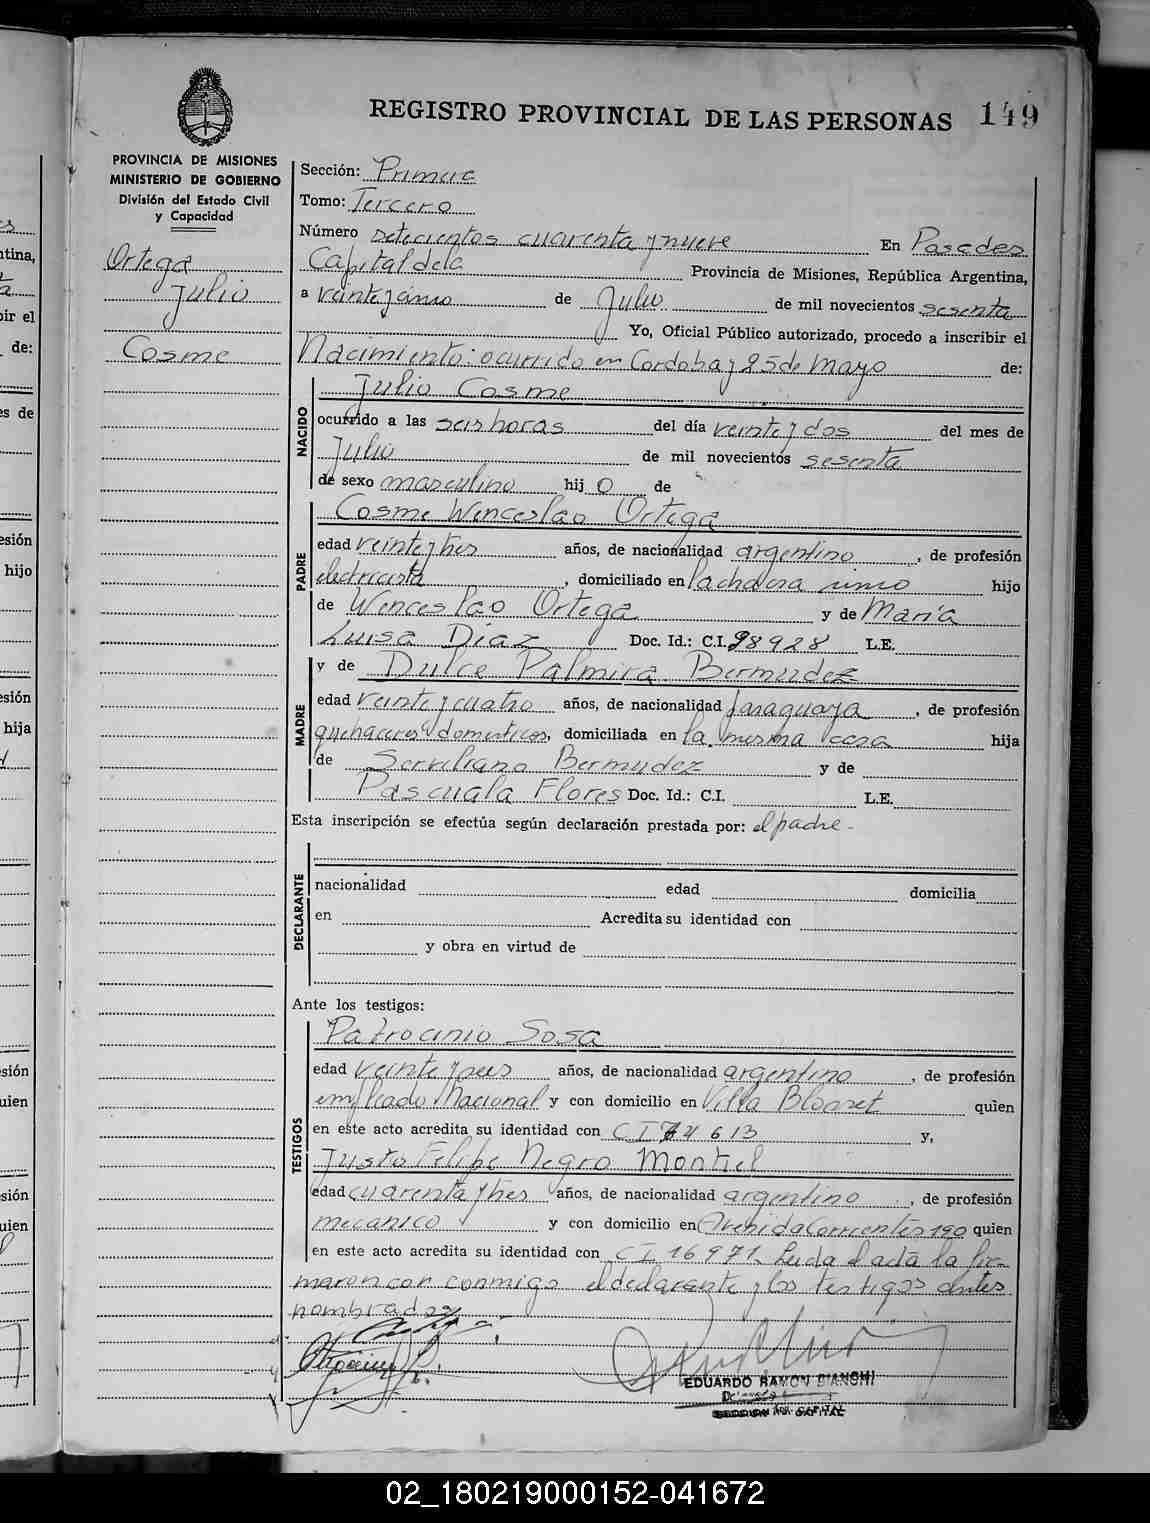 REGISTRO PROVINCIAL DE LAS PERSONAS 149
PROVINCIA DE MISIONES
MINISTERIO DE GOBIERNO
División del Estado Civil
y Capacidad
Ortega
Julio
Cosme
Sección: Primera
Tomo: Tercero
Número setecientos cuarenta y nueve En Posadas
Capital de la Provincia de Misiones, República Argentina,
a veinticinco de Julio de mil novecientos sesenta
Yo, Oficial Público autorizado, procedo a inscribir el
Nacimiento: ocurrido en Cordoba y 25 de Mayo de:
NACIDO
Julio Cosme
ocurrido a las seis horas del día veinte y dos del mes de
Julio de mil novecientos sesenta
de sexo masculino hij o de
PADRE
Cosme Wenceslao Ortega
edad veinte y tres años, de nacionalidad argentino, de profesión
electricista, domiciliado en la chacra hijo
de Wenceslao Ortega y de María
Luisa Diaz Doc. Id.: C.I. 98928 L.E.
MADRE
y de Dulce Palmira Bermudez
edad veinte y cuatro años, de nacionalidad paraguaya, de profesión
quehaceres domesticos, domiciliada en la misma casa hija
de Serviliano Bermudez y de
Pascuala Flores Doc. Id.: C.I. L.E.
Esta inscripción se efectúa según declaración prestada por: el padre-
DECLARANTE
nacionalidad edad domicilia
en Acredita su identidad con
y obra en virtud de
Ante los testigos:
TESTIGOS
Patrocinio Sosa
edad veinte y años, de nacionalidad argentino, de profesión
empleado Nacional y con domicilio en Villa quien
en este acto acredita su identidad con CI 74613 y,
Justo Felipe Negro Montiel
edad cuarenta y tres años, de nacionalidad argentino, de profesión
mecanico y con domicilio en Avenida Corrientes 190 quien
en este acto acredita su identidad con C.I. 16.971. Leida el acta la fir-
maron con conmigo el declarante y los testigos antes
nombrados
EDUARDO RAMON BIANCHI
02_180219000152-041672